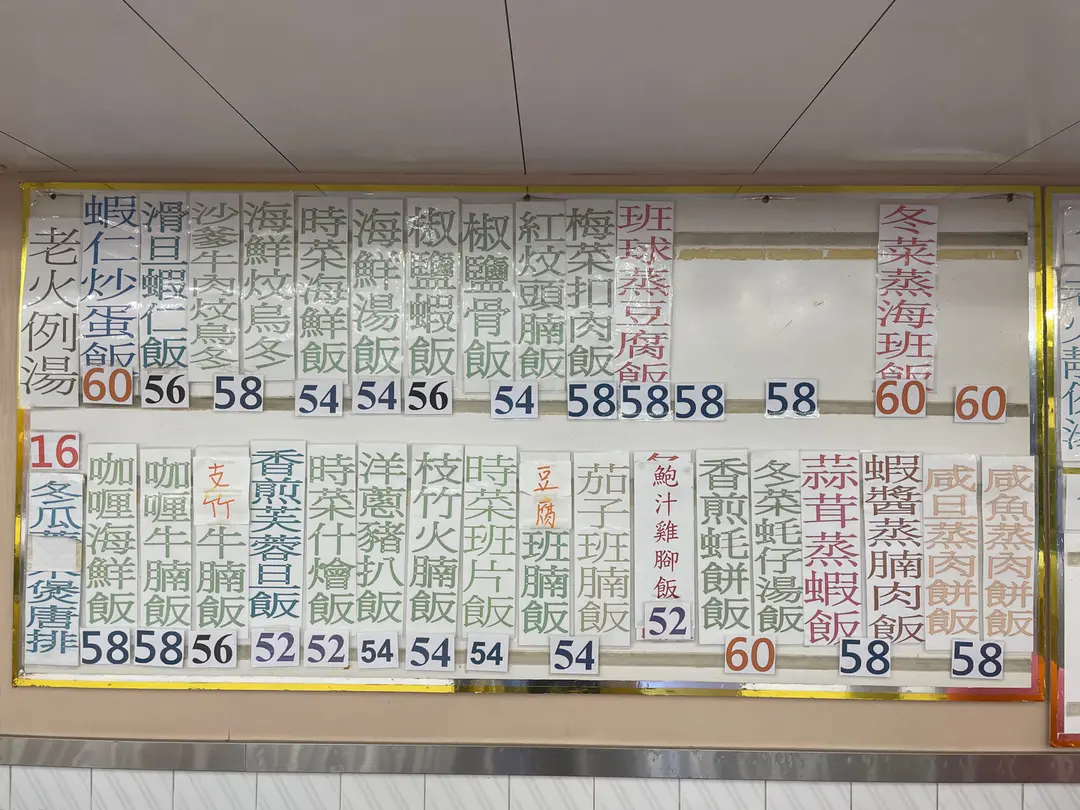 老火例湯
蝦仁炒蛋飯
滑旦蝦仁飯
沙爹牛肉炆烏冬
海鮮炆烏冬
時菜海鮮飯
海鮮湯飯
椒鹽蝦飯
椒鹽骨飯
紅炆頭腩飯
梅菜扣肉飯
班球蒸豆腐飯
冬菜蒸海班飯
60
56
58
54
54
56
54
58
58
58
58
60
60
16
冬瓜
煲唐排
咖喱海鮮飯
咖喱牛腩飯
支竹牛腩飯
香煎芙蓉旦飯
時菜什燴飯
洋蔥豬扒飯
枝竹火腩飯
時菜班片飯
豆腐班腩飯
茄子班腩飯
鮑汁雞腳飯
香煎蚝餅飯
冬菜蚝仔湯飯
蒜茸蒸蝦飯
蝦醬蒸腩肉飯
咸旦蒸肉餅飯
咸魚蒸肉餅飯
58
58
56
52
52
54
54
54
54
52
60
58
58